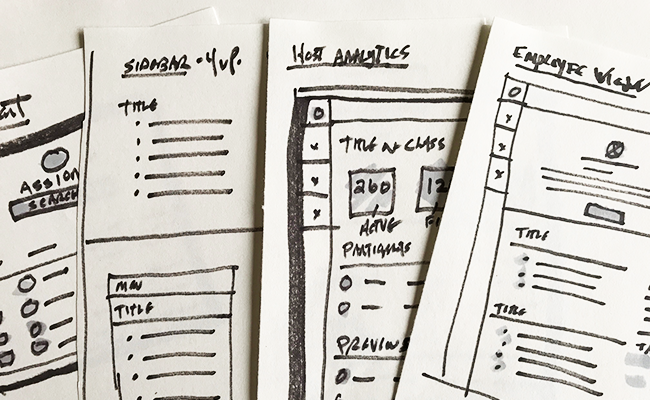 ASSIGN
SEARCH
SIDEBAR - 4 UP.
TITLE
TITLE
HOST ANALYTICS
TITLE OF CLASS
260
12
ACTIVE
PARTICIPANTS
PREVIOUS
EMPLOYEE
TITLE
TITLE